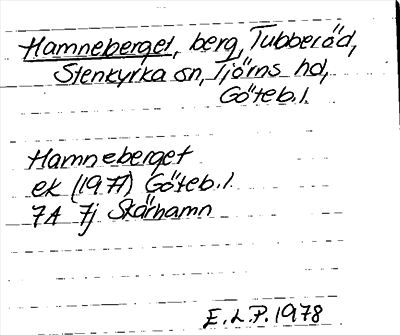 Hamneberget, berg, Tubberöd,
Stenkyrka sn, Tjörns hd,
Göteb.l.
Hamneberget
ek (1977) Göteb.l.
7A 7j Skärhamn
E.L.P. 1978